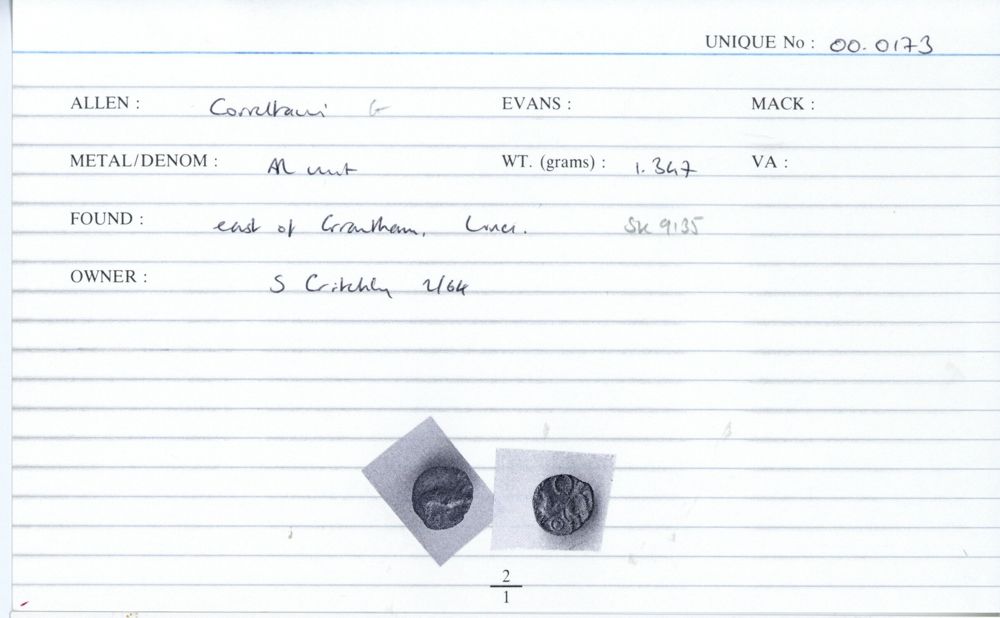 UNIQUE No : 00.0173
ALLEN : Corieltauvi G EVANS : MACK :
METAL/DENOM : AR unit WT. (grams) : 1.347 VA :
FOUND : east of Grantham, Lincs. SK 9135
OWNER : S Critchley 2/64
2
1